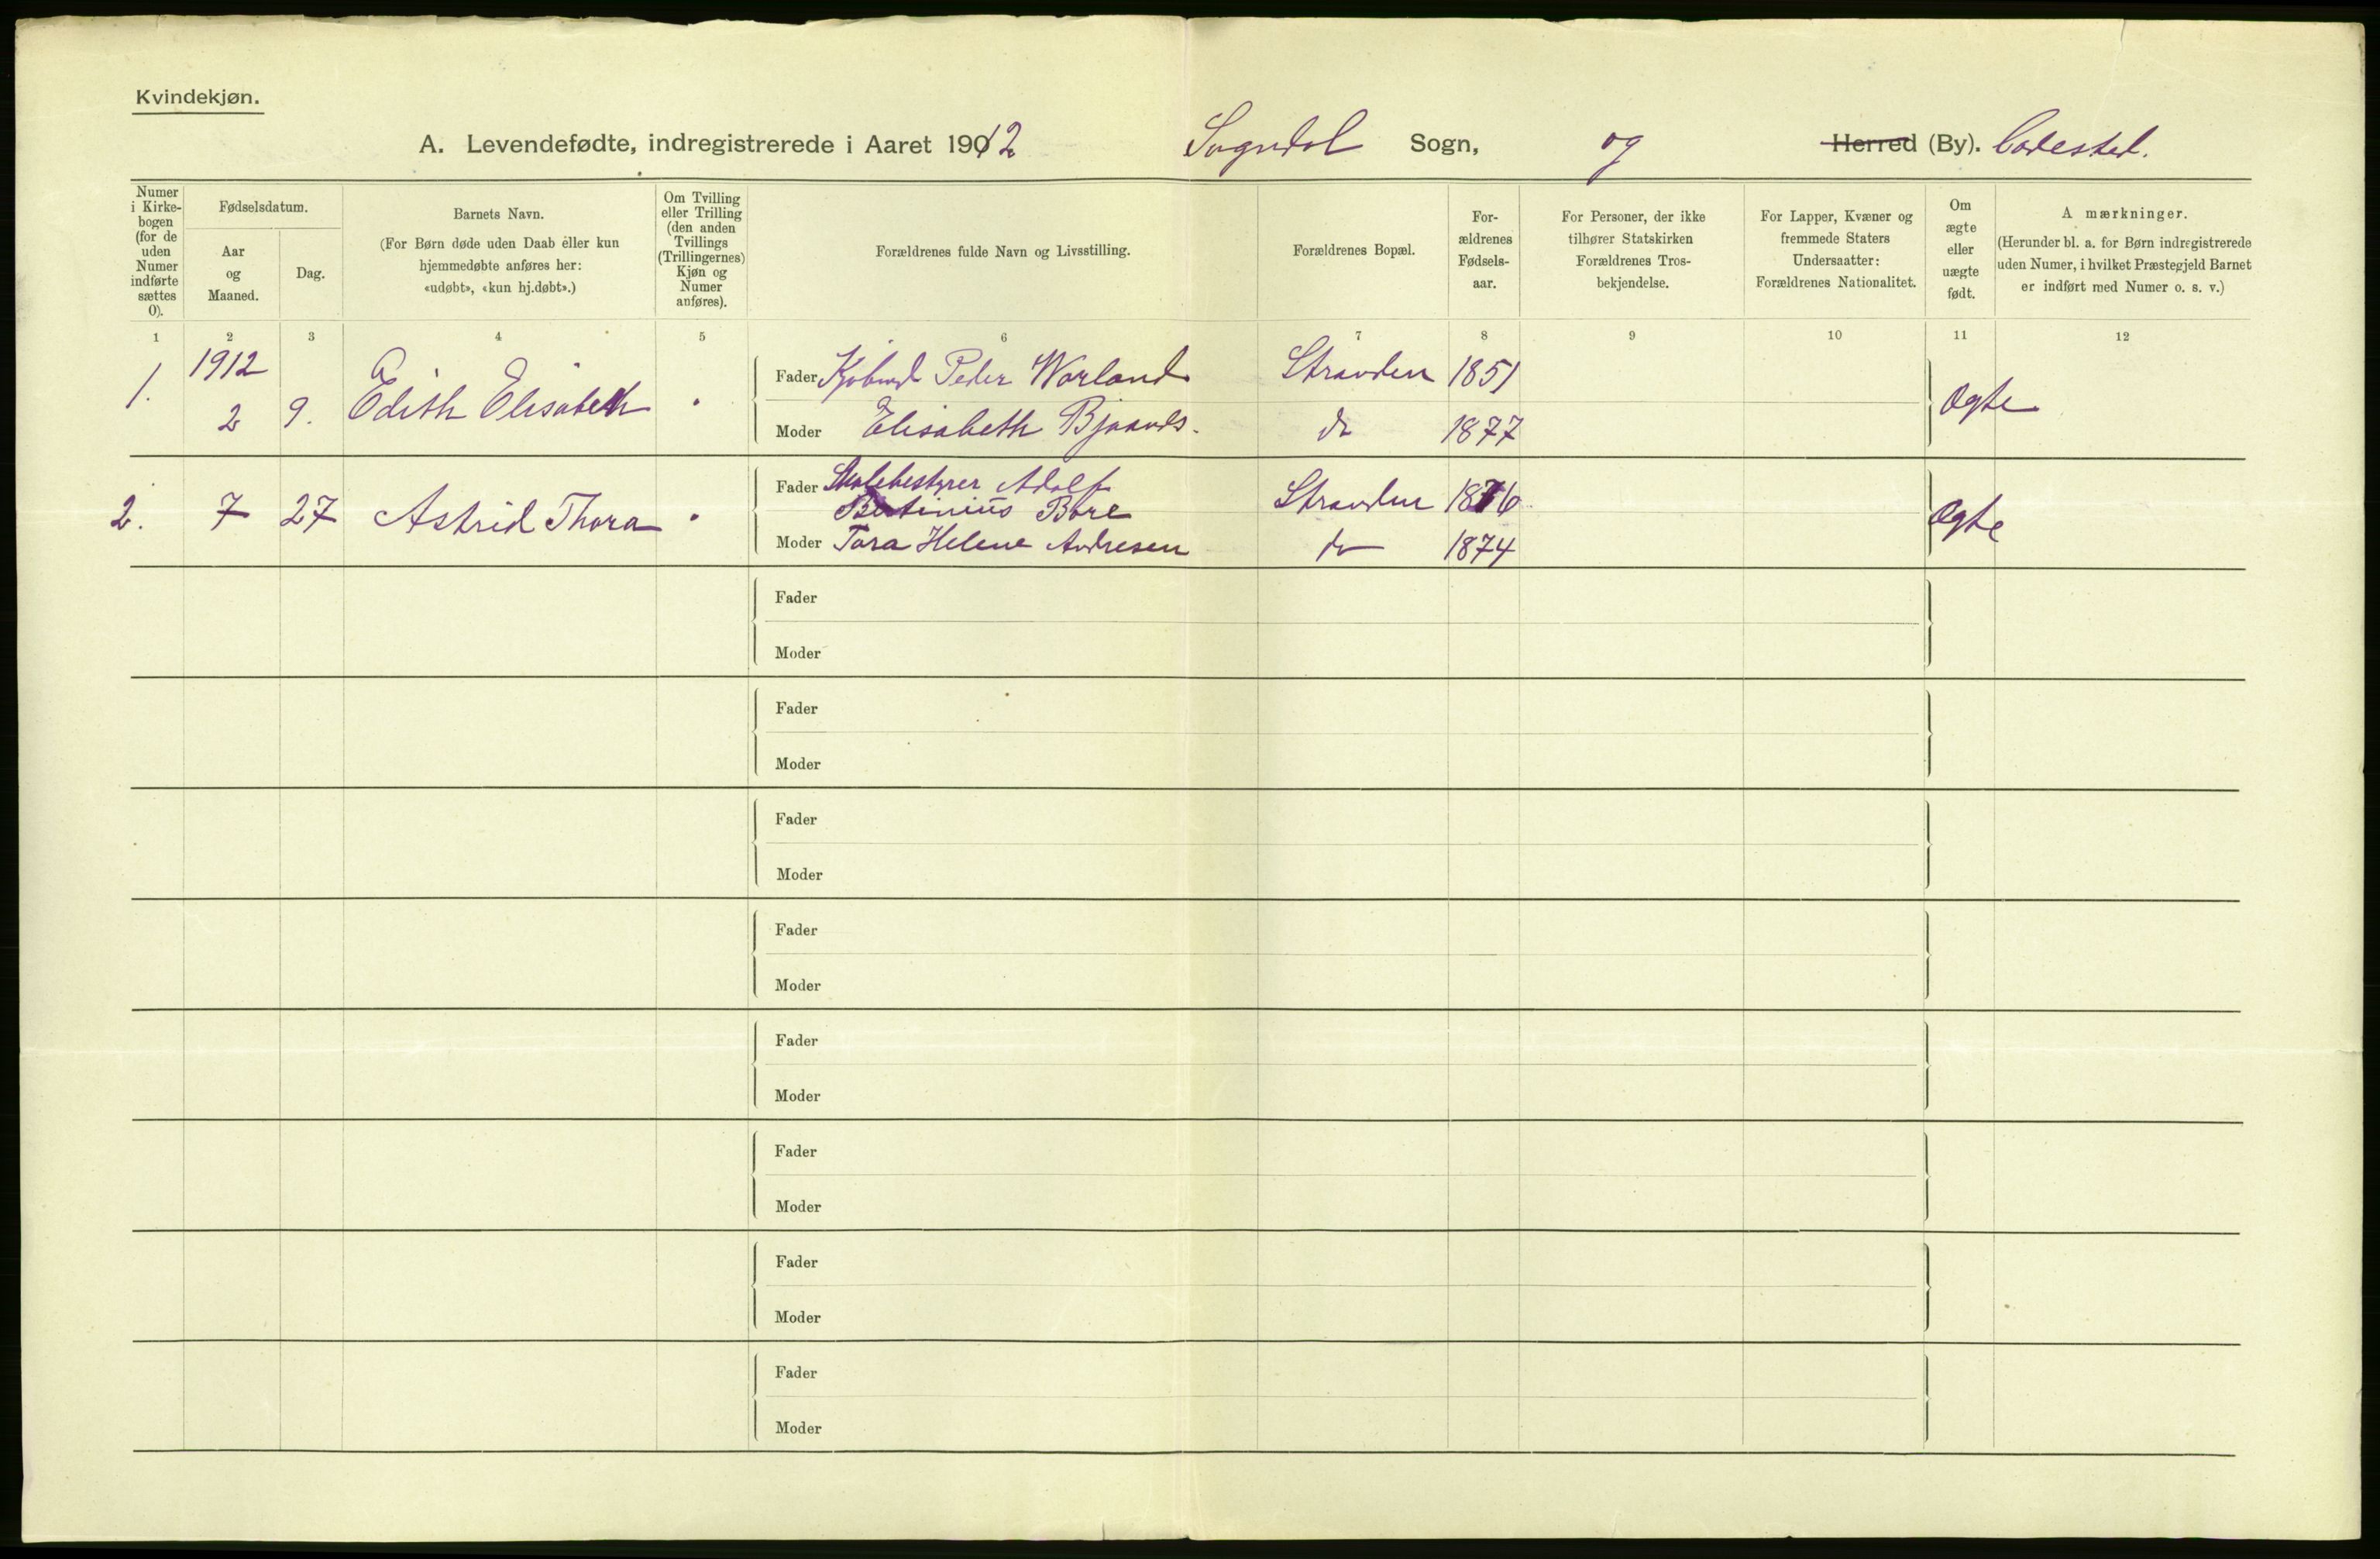 Kvindekjøn.
A. Levendefødte, indregistrerede i Aaret 1912 Sogndal Sogn, og Herred (By). Ladested.
Numer i Kirke-bogen (for de uden Numer indførte sættes 0).
Fødselsdatum.
Aar og Maaned.
Dag.
Barnets Navn.
(For Børn døde uden Daab eller kun hjemmedøbte anføres her: «udøbt», «kun hj.døbt».)
Om Tvilling eller Trilling (den anden Tvillings (Trillingernes) Kjøn og Numer anføres).
Forældrenes fulde Navn og Livsstilling.
Forældrenes Bopæl.
For-ældrenes Fødsels-aar.
For Personer, der ikke tilhører Statskirken Forældrenes Tros-bekjendelse.
For Lapper, Kvæner og fremmede Staters Undersaatter: Forældrenes Nationalitet.
Om ægte eller uægte født.
A mærkninger.
(Herunder bl. a. for Børn indregistrerede uden Numer, i hvilket Præstegjeld Barnet er indført med Numer o. s. v.)
1 2 3 4 5 6 7 8 9 10 11 12
1. 1912 2 9. Edith Elisabeth
Fader Kjøbmd Peder Warland Stranden 1851 Ægte
Moder Elisabeth Bjaanes. do 1877
2. 7 27 Astrid Thora
Fader Skolebestyrer Adolf
Bertinius Bore Stranden 1876 Ægte
Moder Tora Helene Andresen do 1874
Fader
Moder
Fader
Moder
Fader
Moder
Fader
Moder
Fader
Moder
Fader
Moder
Fader
Moder
Fader
Moder